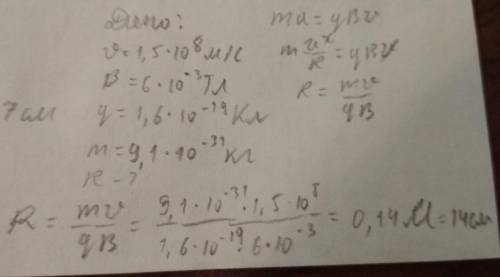 Дано:
v = 1,5·10⁸ м/с
B = 6·10⁻³ Тл
7 см
q = 1,6·10⁻¹⁹ Кл
m = 9,1·10⁻³¹ кг
R - ?
ma = qBv
m v²/R = qBv
R = mv/qB
R = mv/qB = 9,1·10⁻³¹·1,5·10⁸/1,6·10⁻¹⁹·6·10⁻³ = 0,14 м = 14 см